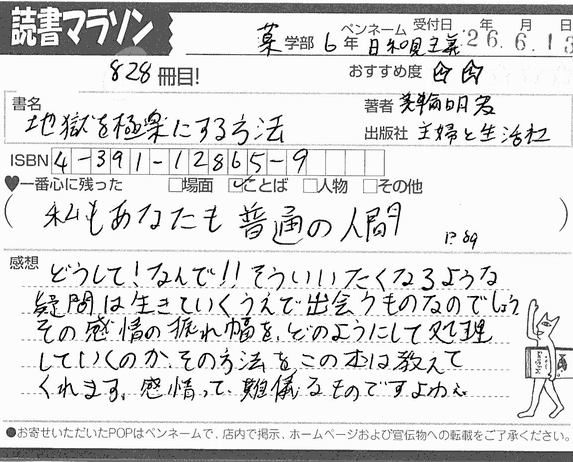 読書マラソン
薬 学部 6 年 ペンネーム 日和見主義 受付日 年 月 日 26.6.13
828 冊目! おすすめ度 ☆☆
書名 著者 美輪明宏
地獄を極楽にする方法 出版社 主婦と生活社
ISBN 4-391-12865-9
♥一番心に残った □場面 ☑ことば □人物 □その他
(私もあなたも普通の人間 P.89)
感想
どうして!なんで!!そういいたくなるような
疑問は生きていくうえで出会うものなのでしょう
その感情の振れ幅を、どのようにして処理
していくのか、その方法をこの本は教えて
くれます。感情って、難儀るものですよねぇ
●お寄せいただいたPOPはペンネームで、店内で掲示、ホームページおよび宣伝物への転載をご了承ください。